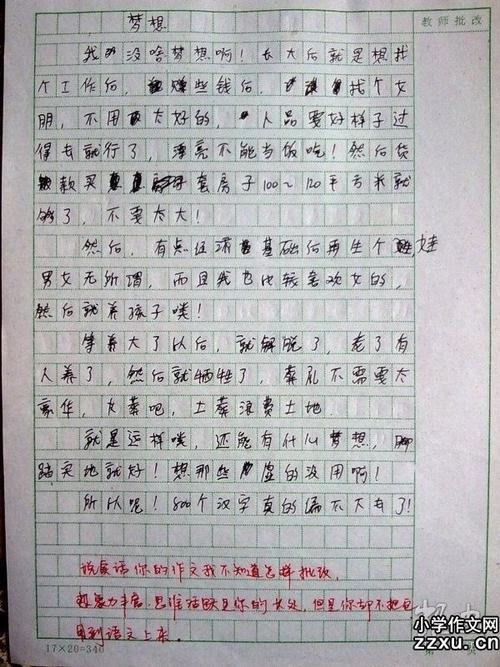 梦想
教师批改
我没啥梦想啊！长大后就是想找
个工作后，赚些钱后，找个女
朋，不用太好的，人品要好样子过
得去就行了，漂亮不能当饭吃！然后贷
款买套房子100~120平方米就
够了，不要太大！
然后，有点经济基础后再生个娃
男女无所谓，而且我也比较喜欢女的，
然后就养孩子喽！
等养大了以后，就解脱了，老了有
人养了，然后就牺牲了，葬礼不需要太
豪华，火葬吧，土葬浪费土地
就是这样喽，还能有什么梦想，脚
踏实地就好！想那些虚的没用啊！
所以呢！800个汉字真的编不下去了！
说实话你的作文我不知道怎样批改，
想象力丰富，思维活跃是你的长处，但是你却不把它
用到语文上来。
17×20=340
第 页
小学作文网
zzxu.cn